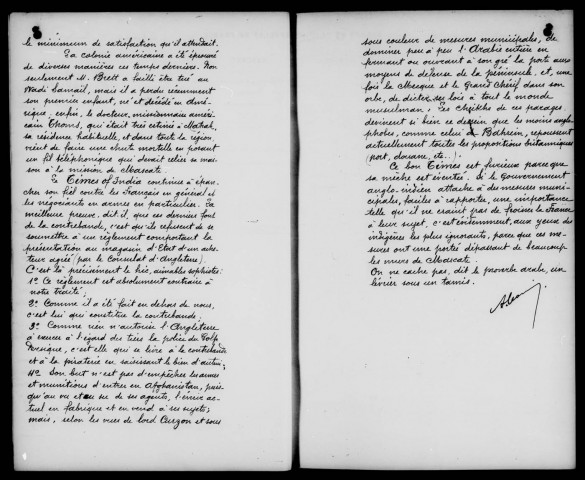 le minimum de satisfaction qu'il attendait.
La colonie américaine a été éprouvée
de diverses manières ces temps derniers. Non
seulement M. Brett a failli être tué au
Wadi Samaïl, mais il a perdu récemment
son premier enfant, né et décédé en Amé-
rique. enfin, le docteur, missionnaire améri-
cain Thoms, qui était très estimé à Matrah,
sa résidence habituelle, et dans toute la région
vient de faire une chute mortelle en posant
un fil téléphonique qui devait relier sa mai-
son à la mission de Mascate.
Le Times of India continue à épan-
cher son fiel contre les Français en général et
les négociants en armes en particulier. La
meilleure preuve, dit-il, que ces derniers font
de la contrebande, c'est qu'ils refusent de se
soumettre à un règlement comportant la
présentation au magasin d'Etat d'un ache-
teur agréé (par le Consulat d'Angleterre).
C'est là précisément le hic, aimables sophistes:
1º Ce règlement est absolument contraire à
notre traité;
2º Comme il a été fait en dehors de nous,
c'est lui qui constitue la contrebande;
3º Comme rien n'autorise l'Angleterre
à exercer à l'égard des tiers la police du Golfe
Persique, c'est elle qui se livre à la contrebande
et à la piraterie en saisissant le bien d'autrui;
4º Son but n'est pas d'empêcher les armes
et munitions d'entrer en Afghanistan, puis-
qu'au vu et au su de ses agents, l'émir ac-
tuel en fabrique et en vend à ses sujets;
mais, selon les vues de lord Curzon et sous
sous couleur de mesures municipales, de
dominer peu à peu l'Arabie entière en
fermant ou ouvrant à son gré la porte aux
moyens de défense de la péninsule et, une
fois la Mecque et le Grand Chérif dans son
orbe, de dicter ses lois à tout le monde
musulman. Les Cheikhs de ces parages
devinent si bien ce dessein que les moins anglo-
phobes, comme celui de Bahrein, repoussent
actuellement toutes les propositions britanniques
(port, douane, etc..).
Ce bon Times est furieux parce que
sa mèche est éventée. Si le Gouvernement
anglo-indien attache à des mesures muni-
cipales, faciles à rapporter, une importance
telle qu'il ne craint pas de froisser la France
à leur sujet, c'est évidemment, aux yeux des
indigènes les plus ignorants, parce que ces me-
sures ont une portée dépassant de beaucoup
les murs de Mascate.
On ne cache pas, dit le proverbe arabe, un
lévrier sous un tamis.